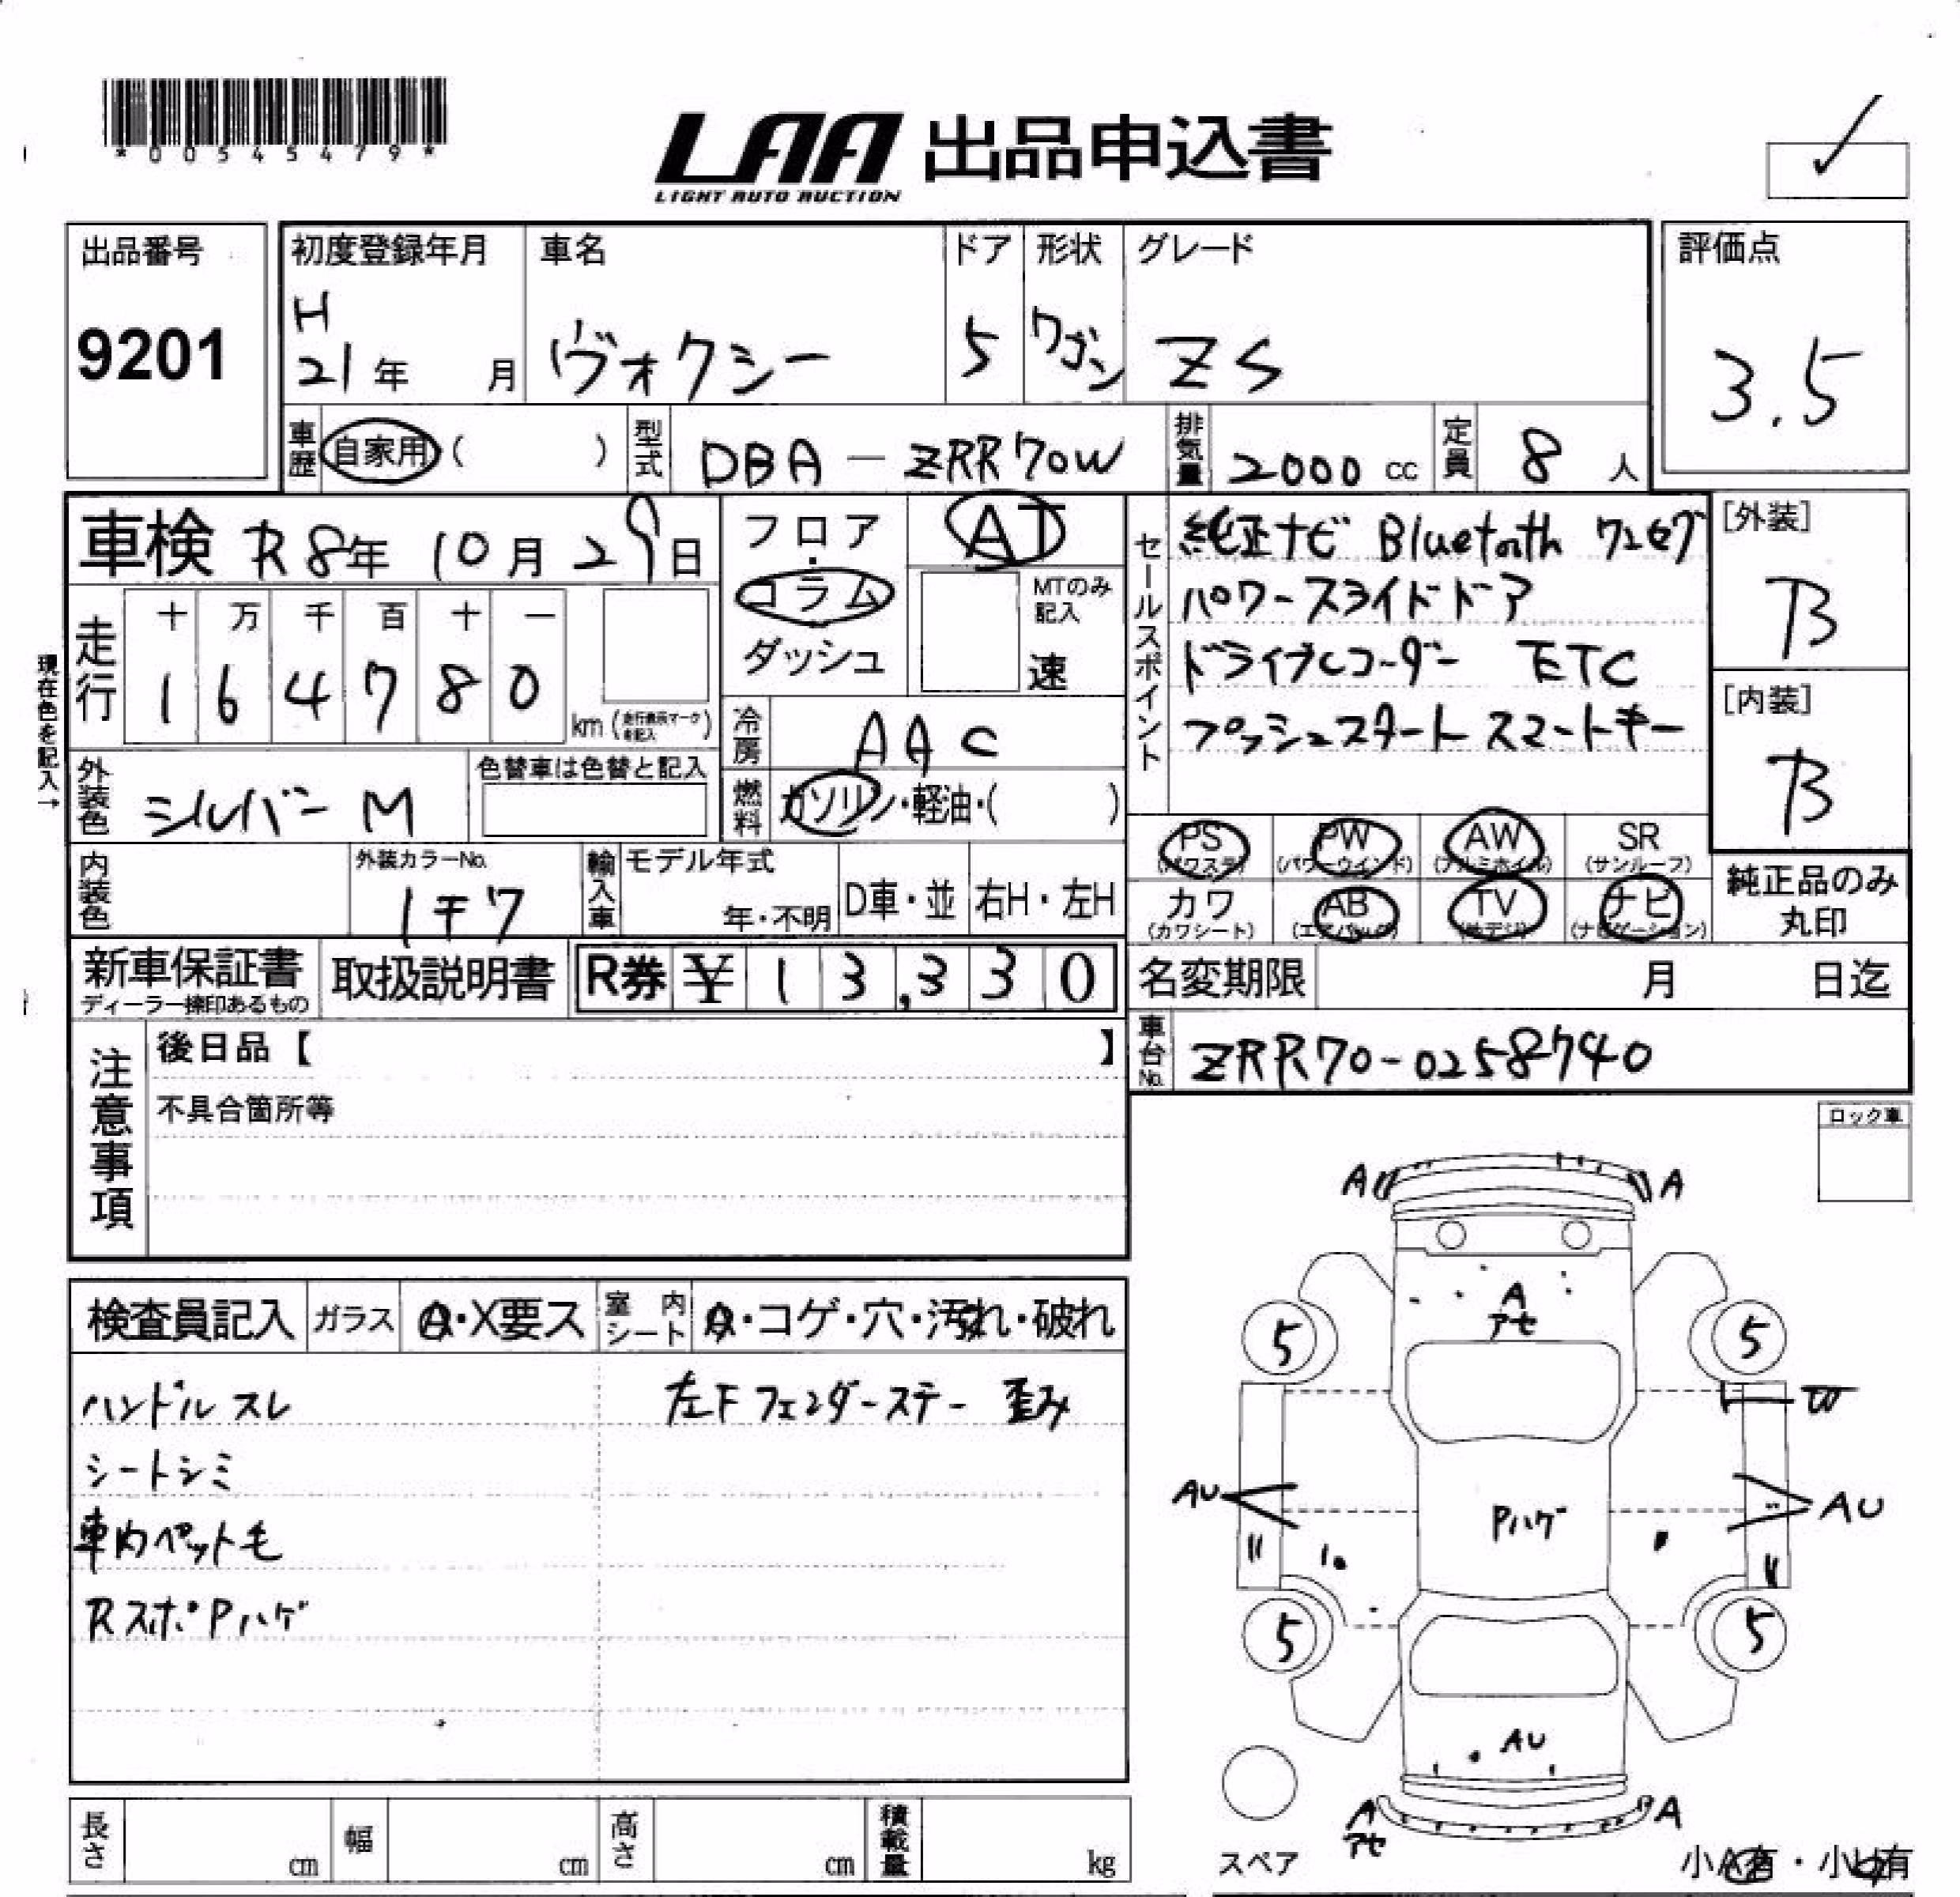 *00545479*
LAA 出品申込書
LIGHT AUTO AUCTION
出品番号
9201
初度登録年月
H
21年 月
車名
ヴォクシー
ドア
5
形状
ワゴン
グレード
ZS
評価点
3.5
車歴 自家用 ( )
型式 DBA-ZRR70W
排気量 2000 cc
定員 8 人
車検 R8年 10月 29日
フロア・コラム・ダッシュ
AT
MTのみ記入
速
セールスポイント
純正ナビ Bluetooth ワンセグ
パワースライドドア
ドライブレコーダー ETC
プッシュスタート スマートキー
[外装]
B
[内装]
B
現在色を記入→
走行
十 万 千 百 十 一
1 6 4 7 8 0
km (走行表示マークを記入)
冷房 AAC
燃料 ガソリン・軽油・( )
外装色 シルバーM
色替車は色替と記入
PS (パワステ)
PW (パワーウインド)
AW (アルミホイル)
SR (サンルーフ)
カワ (カワシート)
AB (エアバック)
TV (地デジ)
ナビ (ナビゲーション)
純正品のみ
丸印
内装色
外装カラーNo.
1F7
輸入車
モデル年式
年・不明
D車・並
右H・左H
新車保証書
ディーラー捺印あるもの
取扱説明書
R券 ¥ 13,330
名変期限 月 日迄
車台No. ZRR70-0258740
注意事項
後日品【 】
不具合箇所等
ロック車
検査員記入
ガラス A・X要ス
室内シート A・コゲ・穴・汚れ・破れ
ハンドル スレ
左F フェンダーステー 歪み
シートシミ
車内ペット毛
Rスポ Pハゲ
A A
A
アセ
5 5
W
AU AU
Pハゲ
5 5
AU
A A
アセ
スペア
小A有・小U有
長さ cm
幅 cm
高さ cm
積載量 kg